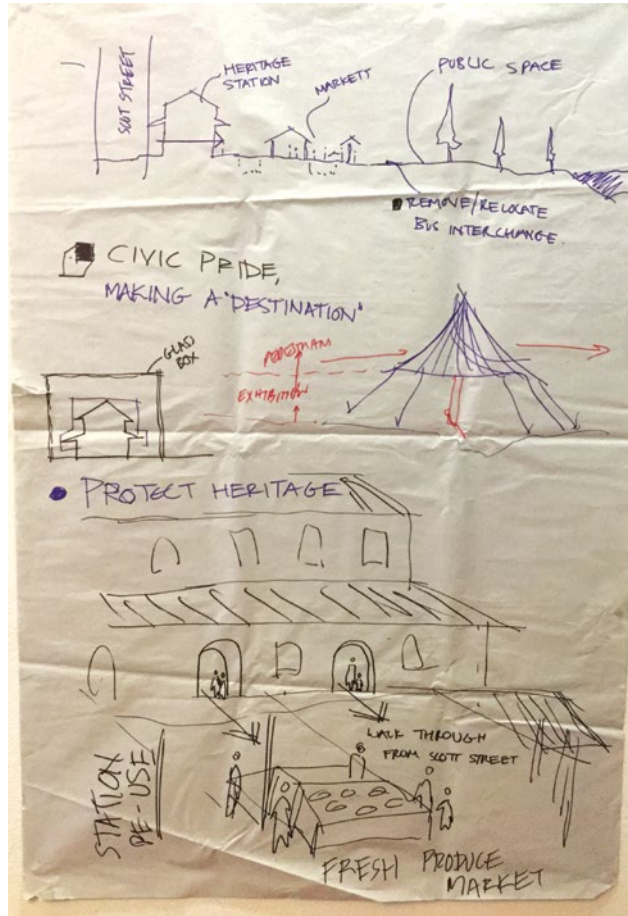 SCOT STREET
HERITAGE
STATION
MARKETT
PUBLIC SPACE
REMOVE/RELOCATE
BUS INTERCHANGE
CIVIC PRIDE,
MAKING A "DESTINATION"
BOX
EXHIBITION
PROTECT HERITAGE
WALK THROUGH
FROM SCOTT STREET
STATION
RE-USE
FRESH PRODUCE
MARKET